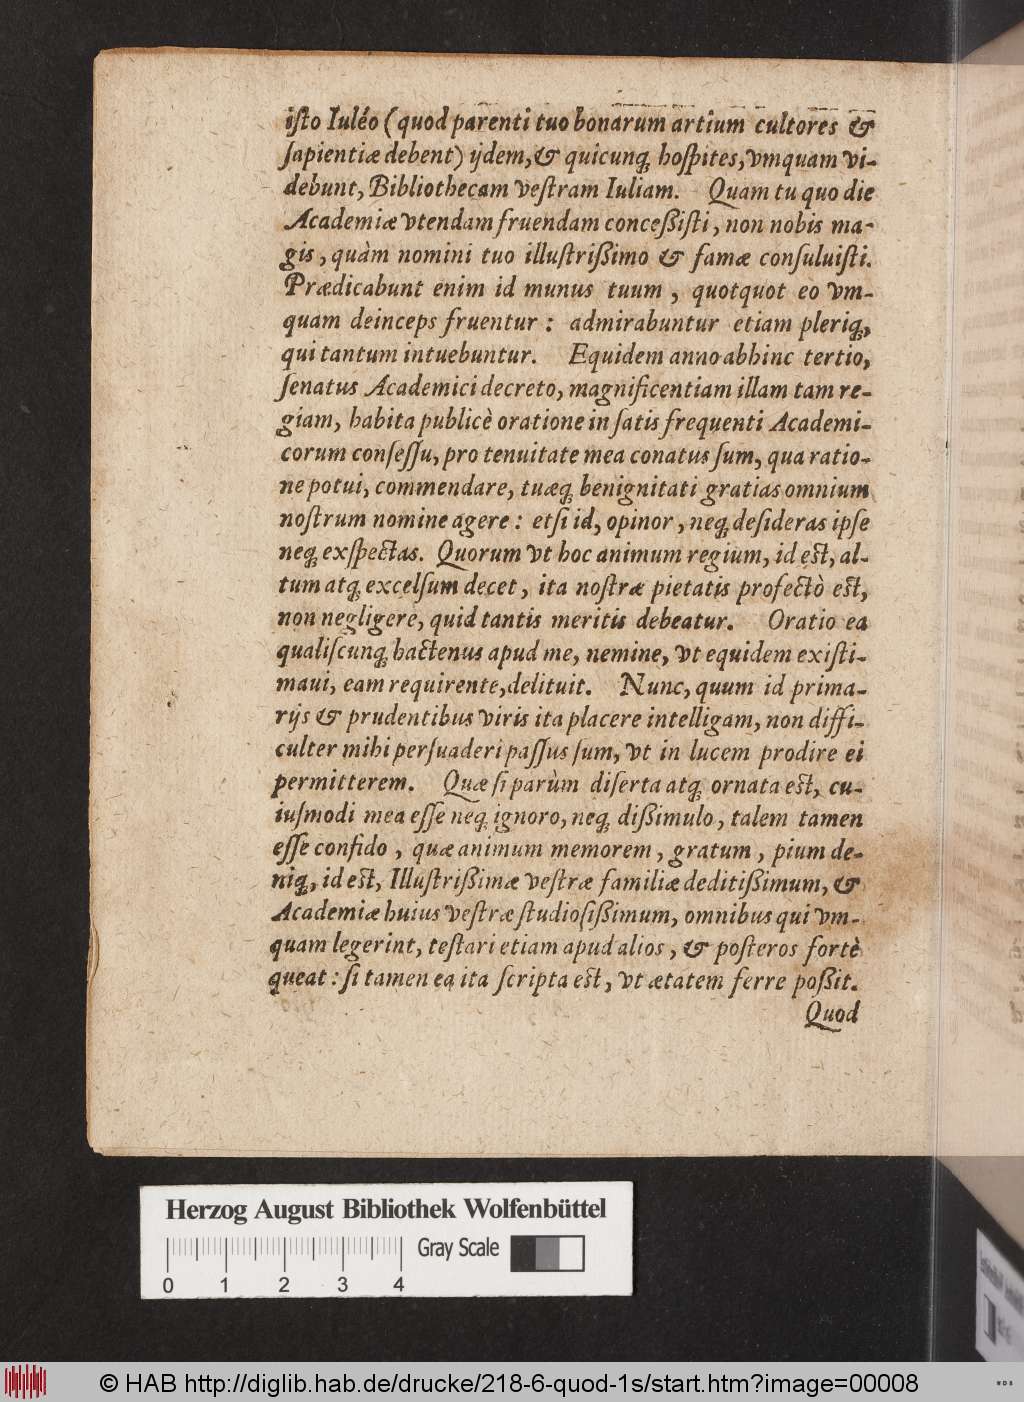 iſto Iuléo (quod parenti tuo bonarum artium cultores &
ſapientiæ debent) ijdem, & quicunq; hoſpites, vmquam vi-
debunt, Bibliothecam veſtram Iuliam. Quam tu quo die
Academiæ vtendam fruendam conceßiſti, non nobis ma-
gis, quàm nomini tuo illuſtrißimo & famæ conſuluiſti.
Prædicabunt enim id munus tuum, quotquot eo vm-
quam deinceps fruentur: admirabuntur etiam pleriq;,
qui tantum intuebuntur. Equidem anno abhinc tertio,
ſenatus Academici decreto, magnificentiam illam tam re-
giam, habita publicè oratione in ſatis frequenti Academi-
corum conſeſſu, pro tenuitate mea conatus ſum, qua ratio-
ne potui, commendare, tuæq; benignitati gratias omnium
noſtrum nomine agere: etſi id, opinor, neq; deſideras ipſe
neq; exſpectas. Quorum vt hoc animum regium, id eſt, al-
tum atq; excelſum decet, ita noſtræ pietatis profectò eſt,
non negligere, quid tantis meritis debeatur. Oratio ea
qualiſcunq; hactenus apud me, nemine, vt equidem exiſti-
maui, eam requirente, delituit. Nunc, quum id prima-
rijs & prudentibus viris ita placere intelligam, non diffi-
culter mihi perſuaderi paſſus ſum, vt in lucem prodire ei
permitterem. Quæ ſi parùm diſerta atq; ornata eſt, cu-
iuſmodi mea eſſe neq; ignoro, neq; dißimulo, talem tamen
eſſe confido, quæ animum memorem, gratum, pium de-
niq;, id eſt, Illuſtrißimæ veſtræ familiæ deditißimum, &
Academiæ huius veſtræ ſtudioſißimum, omnibus qui vm-
quam legerint, teſtari etiam apud alios, & poſteros fortè
queat: ſi tamen ea ita ſcripta eſt, vt ætatem ferre poßit.
Quod
Herzog August Bibliothek Wolfenbüttel
Gray Scale
0 1 2 3 4
© HAB http://diglib.hab.de/drucke/218-6-quod-1s/start.htm?image=00008